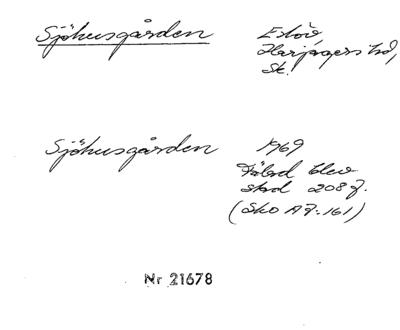 Sjöhusgården Eslöv,
Harjagers hd,
Sk.
Sjöhusgården 1969
blev
stad 208 f.
(Sko A7:161)
Nr 21678